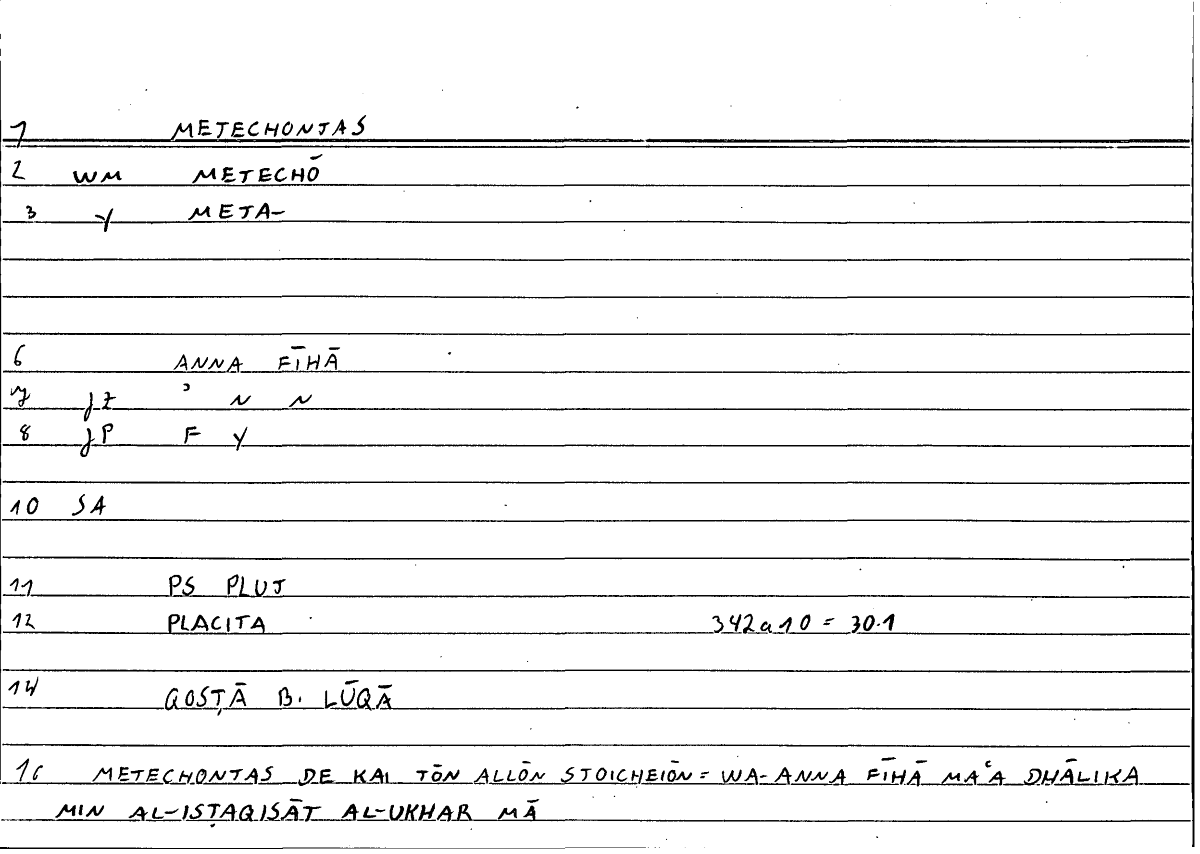 1 METECHONTAS
2 WM METECHŌ
3 Y META-
6 ANNA FĪHĀ
7 JZ ʾ N N
8 JP F Y
10 SA
11 PS PLUT
12 PLACITA 342a10 = 30.1
14 QOSṬĀ B. LŪQĀ
16 METECHONTAS DE KAI TŌN ALLŌN STOICHEIŌN = WA-ANNA FĪHĀ MAʿA DHĀLIKA
MIN AL-ISṬAQISĀT AL-UKHAR MĀ